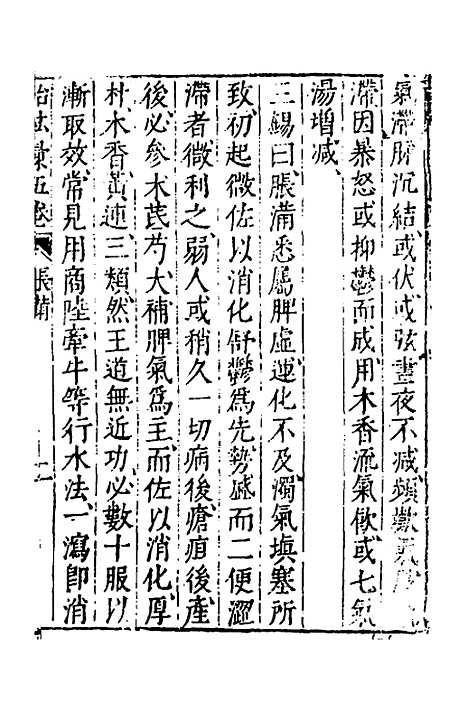 氣滯脈沉結或伏或弦晝夜不減頻歎氣
滯因暴怒或抑鬱而成用木香流氣飲或七氣
湯增減
王錫曰脹滿悉屬脾虛運化不及濁氣塡塞所
致初起微佐以消化舒鬱爲先勢盛而二便澀
滯者微利之弱人或稍久一切病後瘧疽後產
後必參朮芪芍大補脾氣爲主而佐以消化厚
朴木香黃連三類然王道無近功必數十服以
漸取效常見用商陸牽牛等行水法一瀉卽消
治法彙五卷 脹滿